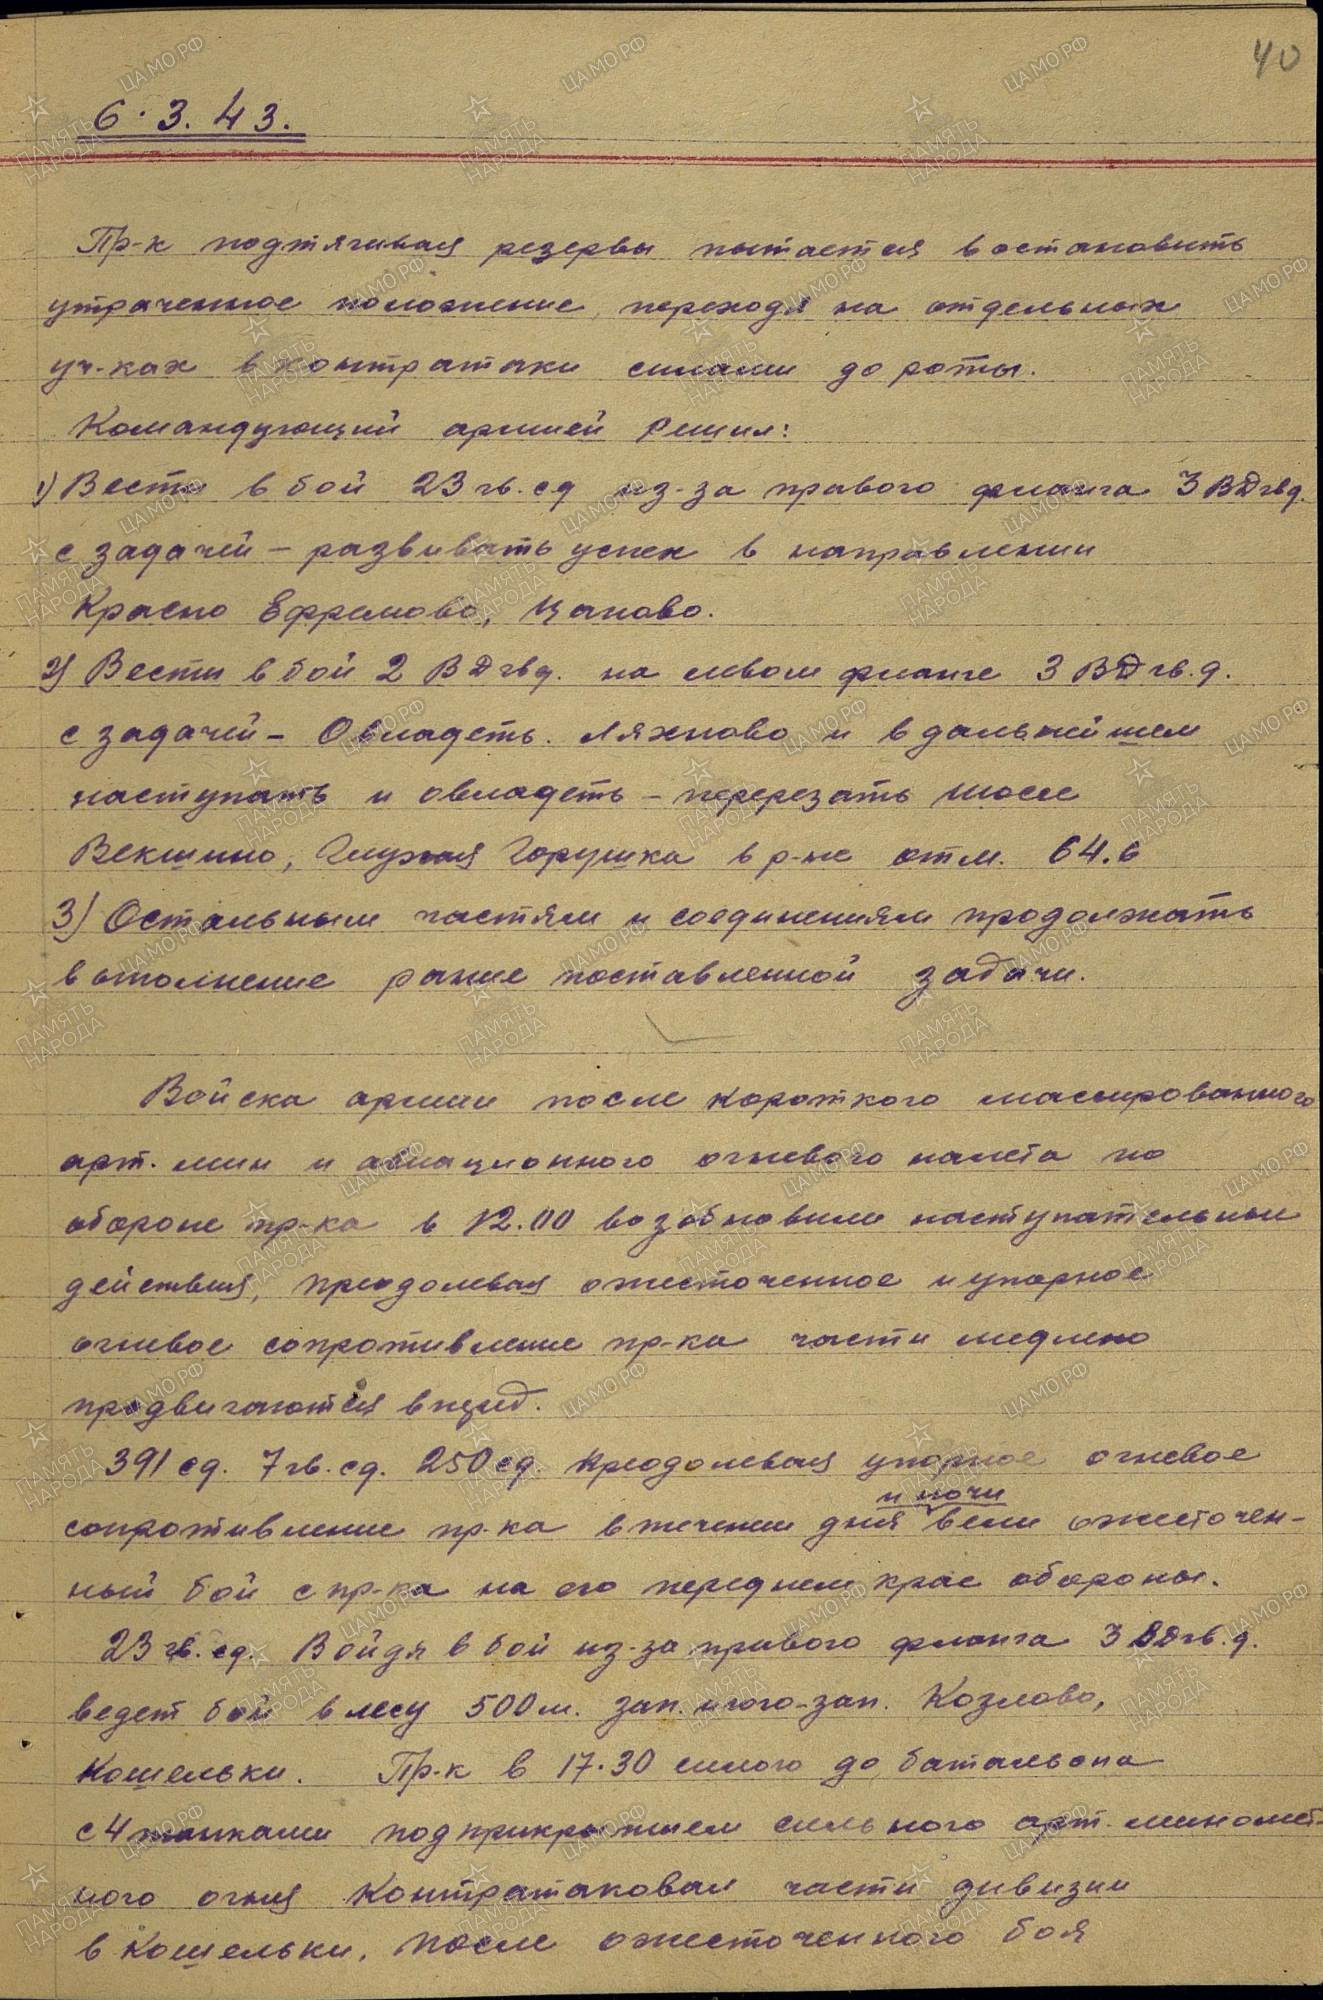 40
6.3.43.
Пр-к подтягивая резервы пытается востановить
утраченное положение, переходя на отдельных
уч-ках в контратаки силами до роты.
Командующий армией решил:
1) Вести в бой 23 гв.сд из-за правого фланга 3 ВДгвд.
с задачей – развивать успех в направлении
Красно Ефремово, Цапово.
2) Вести в бой 2 ВДгвд. на левом фланге 3 ВДгв.д.
с задачей – Овладеть Ляхново и в дальнейшем
наступать и овладеть – перерезать шоссе
Векшино, Глухая Горушка в р-не отм. 64.6
3) Остальным частям и соединениям продолжать
выполнение ранее поставленной задачи.
Войска армии после короткого массированного
арт. мин и авиационного огневого налета по
обороне пр-ка в 12.00 возобновили наступательные
действия, преодолевая ожесточенное и упорное
огневое сопротивление пр-ка части медлено
продвигаются вперед.
391 сд. 7 гв.сд. 250 сд. преодолевая упорное огневое
сопротивление пр-ка в течении дня и ночи вели ожесточен-
ный бой с пр-ка на его переднем крае обороны.
23 гв.сд. Войдя в бой из-за правого фланга 3 ВДгв.д.
ведет бой в лесу 500 м. зап. и юго-зап. Козлово,
Кошельки. Пр-к в 17.30 силою до батальона
с 4 танками под прикрытием сильного арт. миномет-
ного огня контратаковал части дивизии
в Кошельки. После ожесточенного боя
ЦАМО.РФ
ПАМЯТЬ НАРОДА